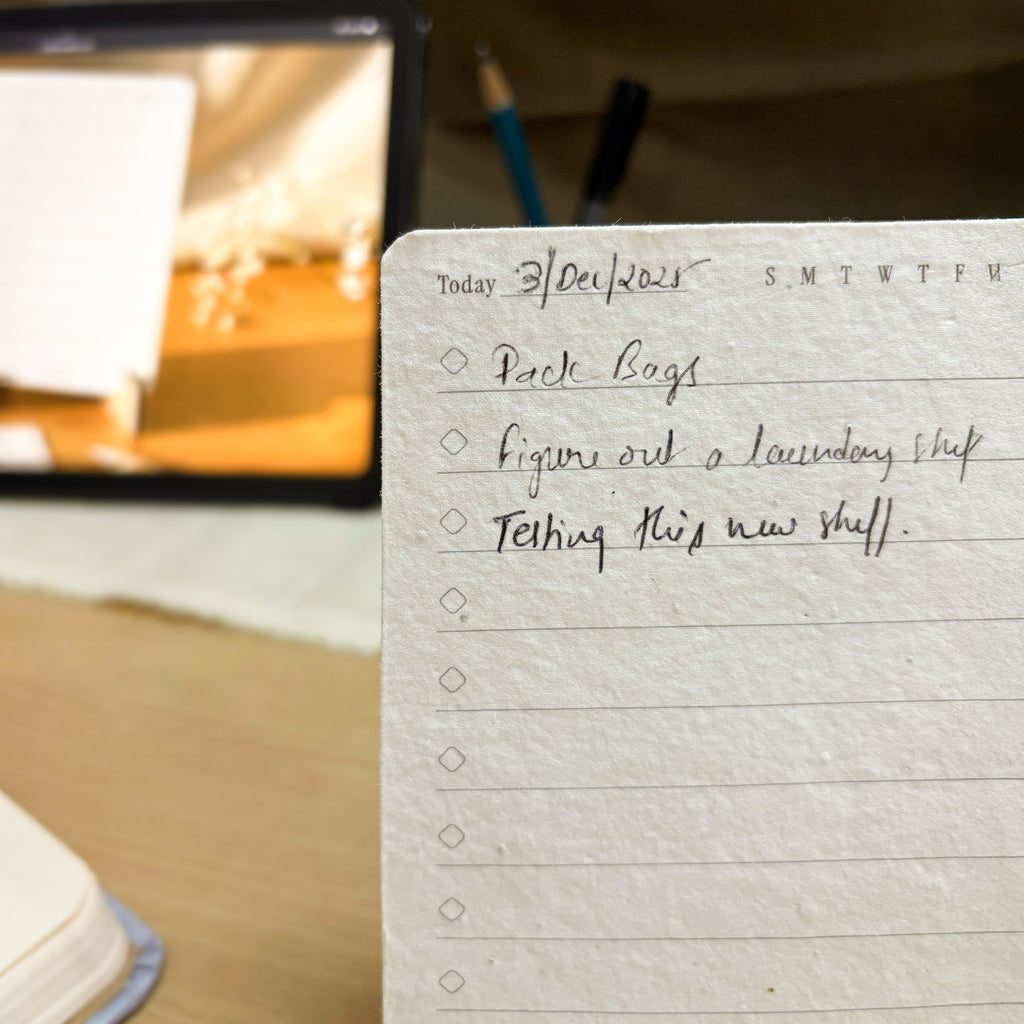 Today 3/Dec/2025 S M T W T F
Pack Bags
figure out a laundary
Testing this new